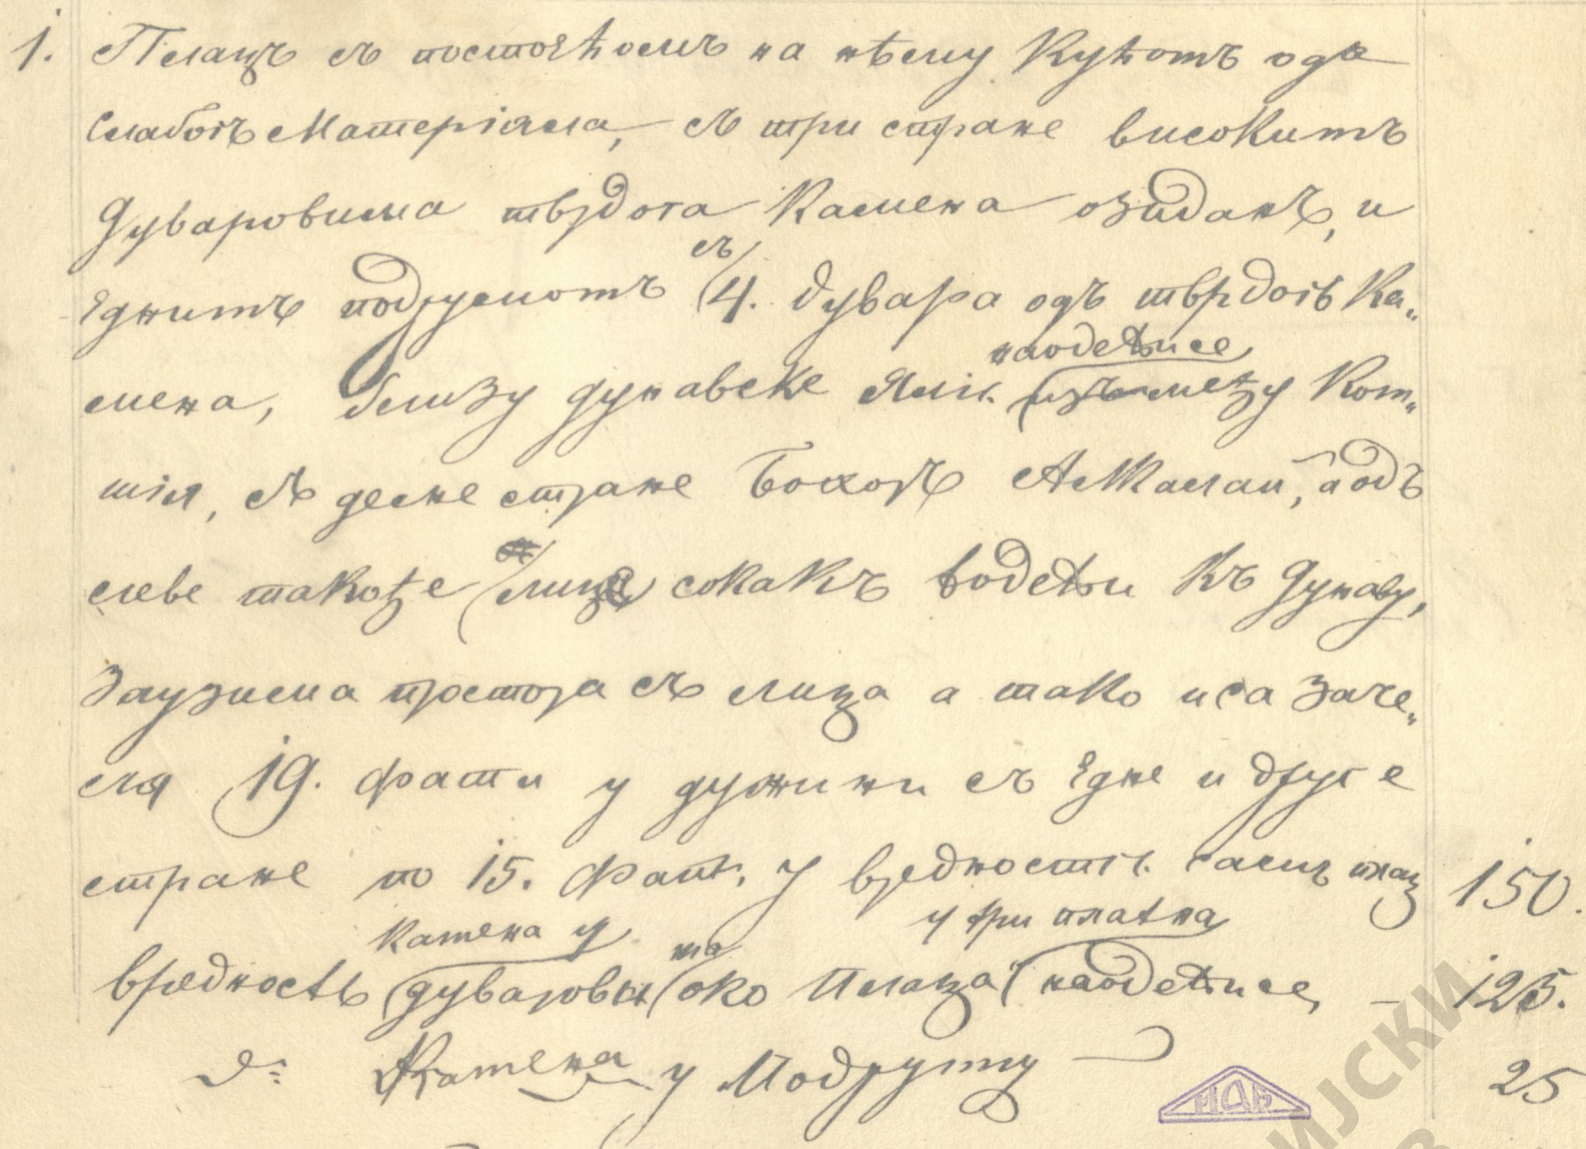 1. Плацъ съ постоећомъ на нѣму кућомъ одъ
слабогъ материяла, съ три стране високимъ
дуваровима тврдога камена озиданъ, и
еднимъ подрумомъ съ 4. дувара одъ тврдогъ ка„
наодећисе
мена, близу дунавске између ком„
шія, съ десне стране Бохоръ одъ
леве такође лице сокакъ водећи къ дунаву,
заузима простора съ лица а тако и са заче„
ля 19. фати у дужини съ едне и друге
стране по 15. фати, у вредности самъ плац 150.
камена у на у три платна
вредность дуварови око плаца наодећисе, — 125.
д:о Камена у подруму — 25
ИАБ
ИЈСКИ